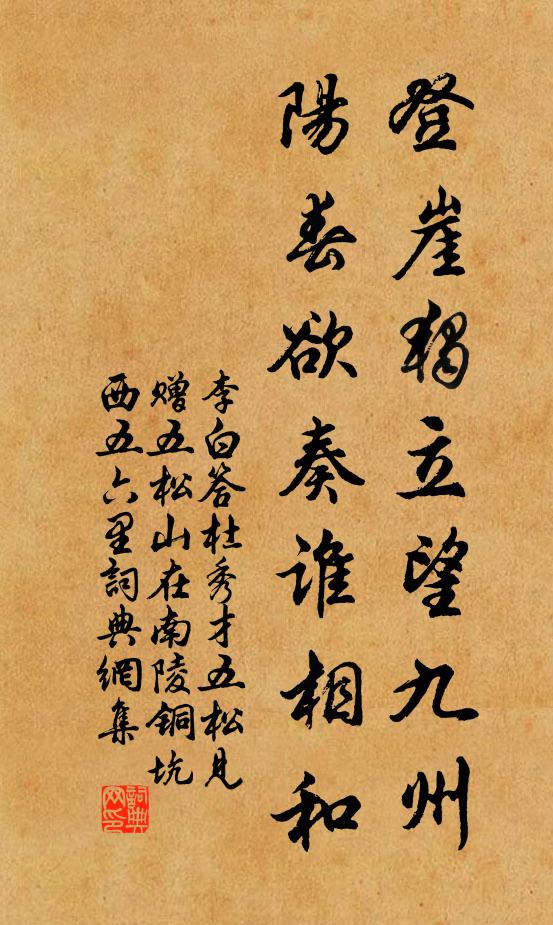 登崖獨立望九州
陽春欲奏誰相和
李白答杜秀才五松見
贈五松山在南陵銅坑
西五六里詞典網集
詞典
网印